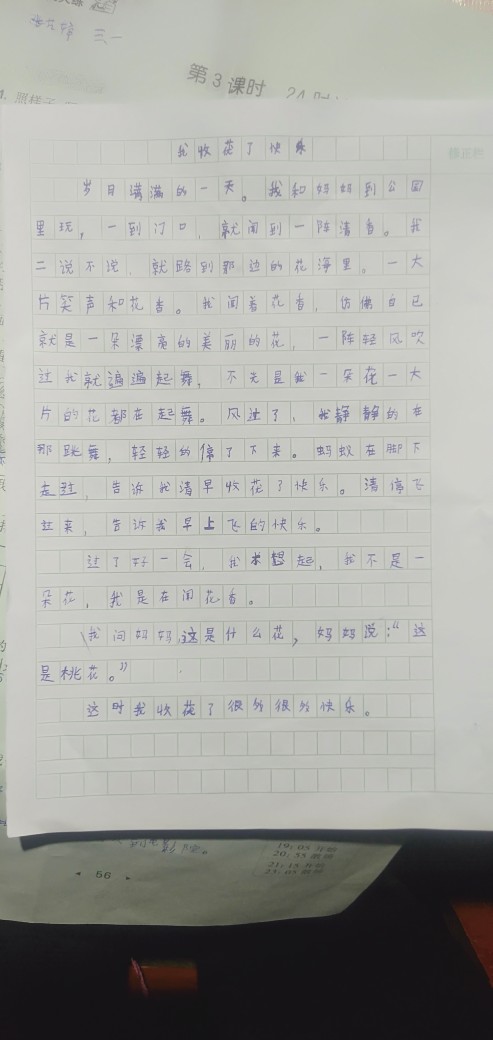 三一
第3课时
我收花了快乐
岁日满满的一天。我和妈妈到公园
里玩，一到门口，就闻到一阵清香。我
二说不说，就跑到那边的花海里。一大
片笑声和花香。我闻着花香，仿佛自己
就是一朵漂亮的美丽的花，一阵轻风吹
过我就遍遍起舞，不光是我一朵花一大
片的花都在起舞。风过了，我静静的在
那跳舞，轻轻的停了下来。蚂蚁在脚下
走过，告诉我清早收花了快乐。清停飞
过来，告诉我早上飞的快乐。
过了好一会，我才想起，我不是一
朵花，我是在闻花香。
我问妈妈，这是什么花，妈妈说：“这
是桃花。”
这时我收花了很外很外快乐。
56
19:05
20:55
21:15
23:05